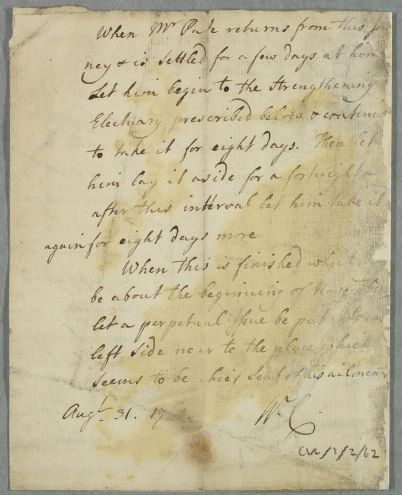 When Mr Pale returns from this jor
ney & is settled for a few days at home
Let him begin to the Strengthening
Electuary prescribed below & continue
to take it for eight days. Then let
him lay it aside for a fortnight &
after this interval let him take it
again for eight days more
When this is finished which
be about the beginning of November
let a perpetual Issue be put
left side near to the place which
seems to be chief Seat of his ailment
Augt 31. 17
Wm C
CUL/1/2/62